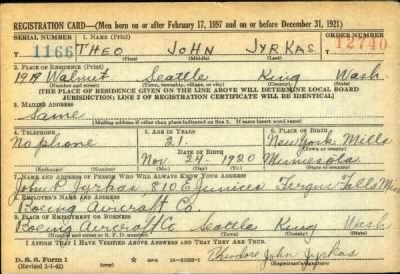 REGISTRATION CARD—(Men born on or after February 17, 1897 and on or before December 31, 1921)
SERIAL NUMBER 1. NAME (Print) ORDER NUMBER
T 1166 THEO JOHN JYRKAS T 12740
(First) (Middle) (Last)
2. PLACE OF RESIDENCE (Print)
1919 Walnut Seattle King Wash
(Number and street) (Town, township, village, or city) (County) (State)
[THE PLACE OF RESIDENCE GIVEN ON THE LINE ABOVE WILL DETERMINE LOCAL BOARD
JURISDICTION; LINE 2 OF REGISTRATION CERTIFICATE WILL BE IDENTICAL]
3. MAILING ADDRESS
Same
[Mailing address if other than place indicated on line 2. If same insert word same]
4. TELEPHONE 5. AGE IN YEARS 6. PLACE OF BIRTH
No phone 21 New York Mills
DATE OF BIRTH (Town or county)
Nov 24 - 1920 Minnesota
(Exchange) (Number) (Mo.) (Day) (Yr.) (State or country)
7. NAME AND ADDRESS OF PERSON WHO WILL ALWAYS KNOW YOUR ADDRESS
John P. Jyrkas 810 E Fergus Falls Minn
8. EMPLOYER'S NAME AND ADDRESS
Boeing Aircraft Co.
9. PLACE OF EMPLOYMENT OR BUSINESS
Boeing Aircraft Co Seattle King Wash
(Number and street or R. F. D. number) (Town) (County) (State)
I AFFIRM THAT I HAVE VERIFIED ABOVE ANSWERS AND THAT THEY ARE TRUE.
D. S. S. Form 1 Theodore John Jyrkas
(Revised 1-1-42) (over) (Registrant's signature)